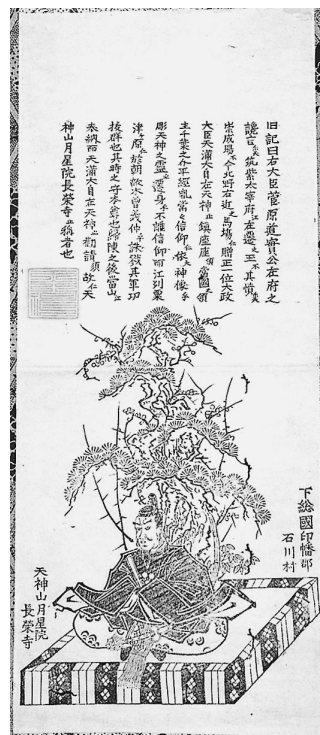 旧記曰右大臣菅原道實公在府之
讒言筑紫太宰府江左遷玉其憤
今北野右近之馬場仁贈正一位大政
大臣天滿大自在天神止鎮座座須當國領
主千葉之介平經胤常々信仰仁依天神像乎
彫天神之靈遷身乎不離信仰而江列粟
津原於朝敵木曾義仲乎誅戮其軍功
抜群也其時之守本尊也歸陳之後當山江
奉納而天滿大自在天神止勸請須故仁天
神山月星院長榮寺止稱者也
下総國印幡郡
石川村
天神山月星院
長榮寺